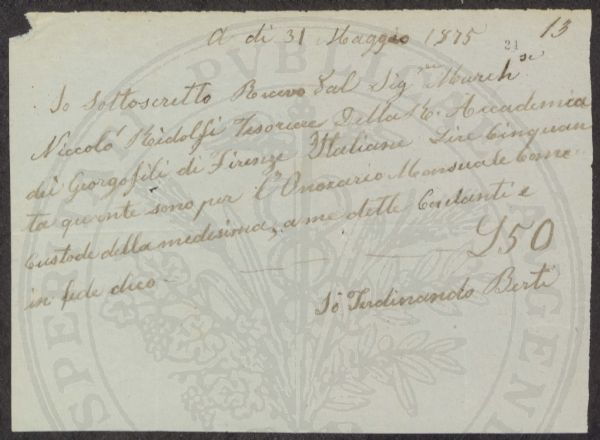 A di 31 Maggio 1875
13
21
Io Sottoscritto Ricevo Dal Sig.re March.se
Niccolò Ridolfi Tesoriere Della R. Accademia
dei Georgofili di Firenze Italiane Lire Cinquan
ta quante sono per l'Onorario Mensuale Come
Custode della medesima, a me dette Contanti e
in fede dico
£50
Io Ferdinando Berti
PUBLICA